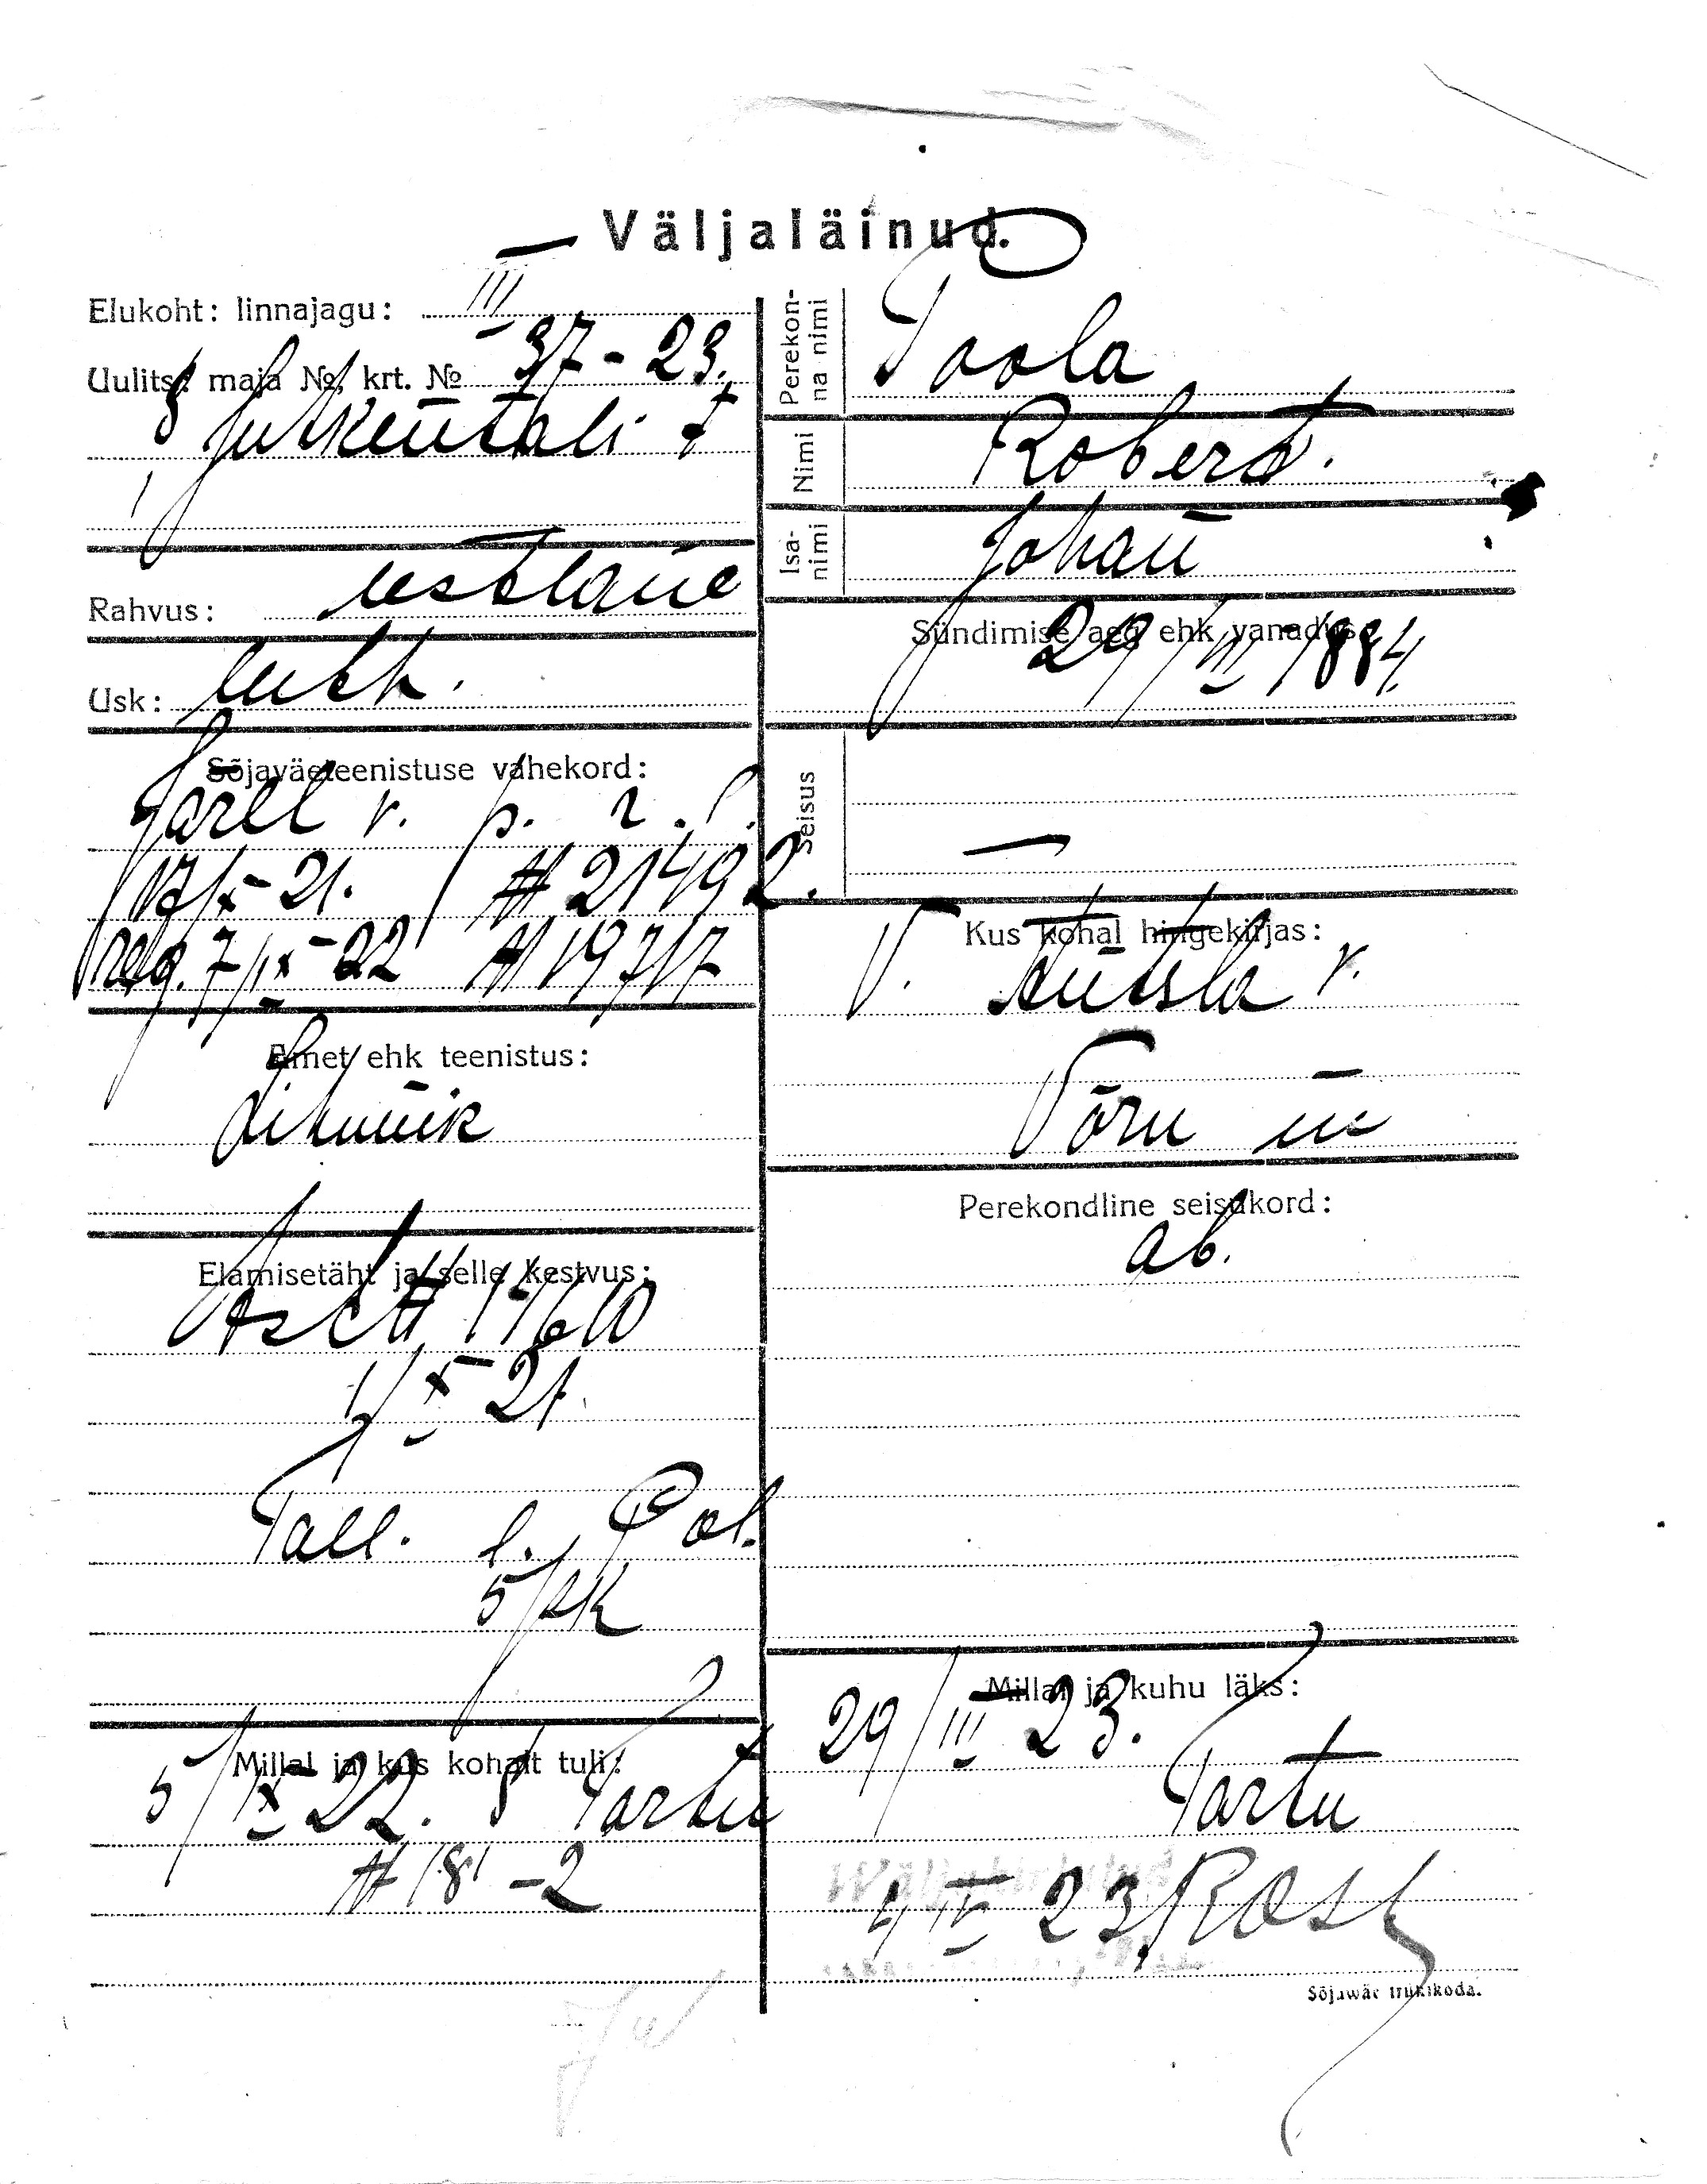 Väljaläinud.
Elukoht: linnajagu: III
Uulits, maja №, krt. № 37-23.
Rahvus: eestlane
Usk: luth.
Sõjaväeteenistuse vahekord:
17/X-21. № 21492.
reg. 7/IX-22 № 19717
Amet ehk teenistus:
Lihunik
Elamisetäht ja selle kestvus:
1/X 21.
Tall. l. Pol.
5/jsk
Millal ja kus kohalt tuli:
5/IX 22. Tartu
№ 18-2
Perekonna nimi
Toola
Nimi
Robert.
Isanimi
Johan
Sündimise aeg ehk vanadus:
Seisus
—
Kus kohal hingekirjas:
V. v.
Võru m
Perekondline seisukord:
ab.
Millal ja kuhu läks:
29/III 23.
Tartu
4/IV 23.
Sõjawäe trükikoda.